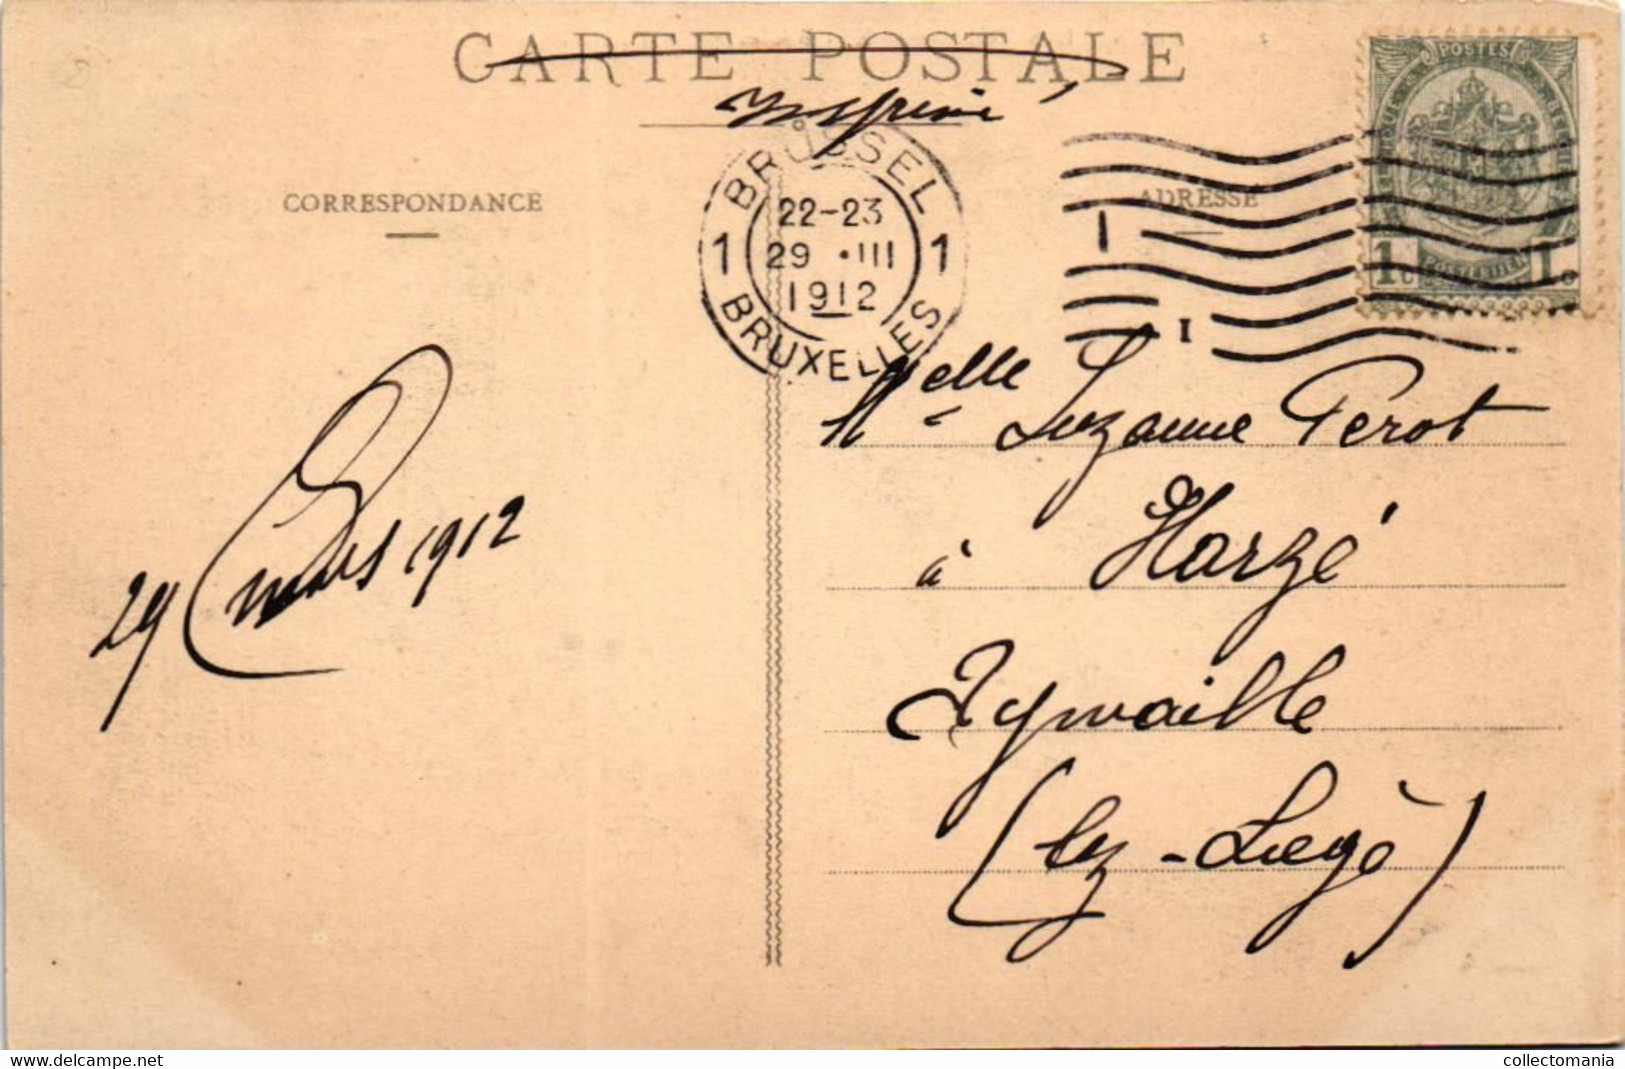 CARTE POSTALE
Imprimé
CORRESPONDANCE
ADRESSE
BRÜSSEL
22-23
1 29 •III 1
1912
BRUXELLES
I
POSTES
1c POSTERIJEN 1c
Melle Suzanne Perot
à Harzé
Aywaille
(lez-Liège)
29 mars 1912
delcampe.net
collectomania